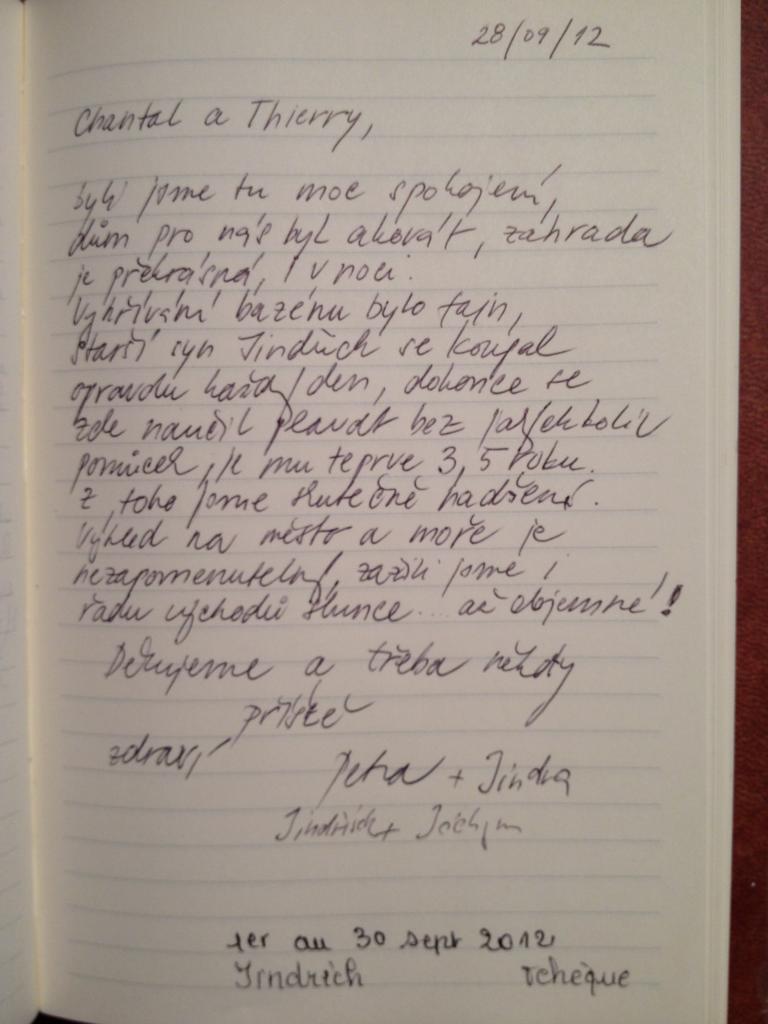 28/09/12
Chantal a Thierry,
byli jsme tu moc spokojeni,
dům pro nás byl akorát, zahrada
je překrásná, i v noci.
Vyhřívání bazénu bylo fajn,
starší syn Jindřich se koupal
opravdu každý den, dokonce se
zde naučil plavat bez jakýchkoliv
pomůcek, je mu teprve 3,5 roku.
Z toho jsme skutečně nadšeni.
Výhled na město a moře je
nezapomenutelný, zažili jsme i
řadu východů slunce... až dojemné!
Děkujeme a třeba někdy
příště
zdraví
Petra + Jindra
Jindřich + Jáchym
1er au 30 sept 2012
Jindrich Tchèque